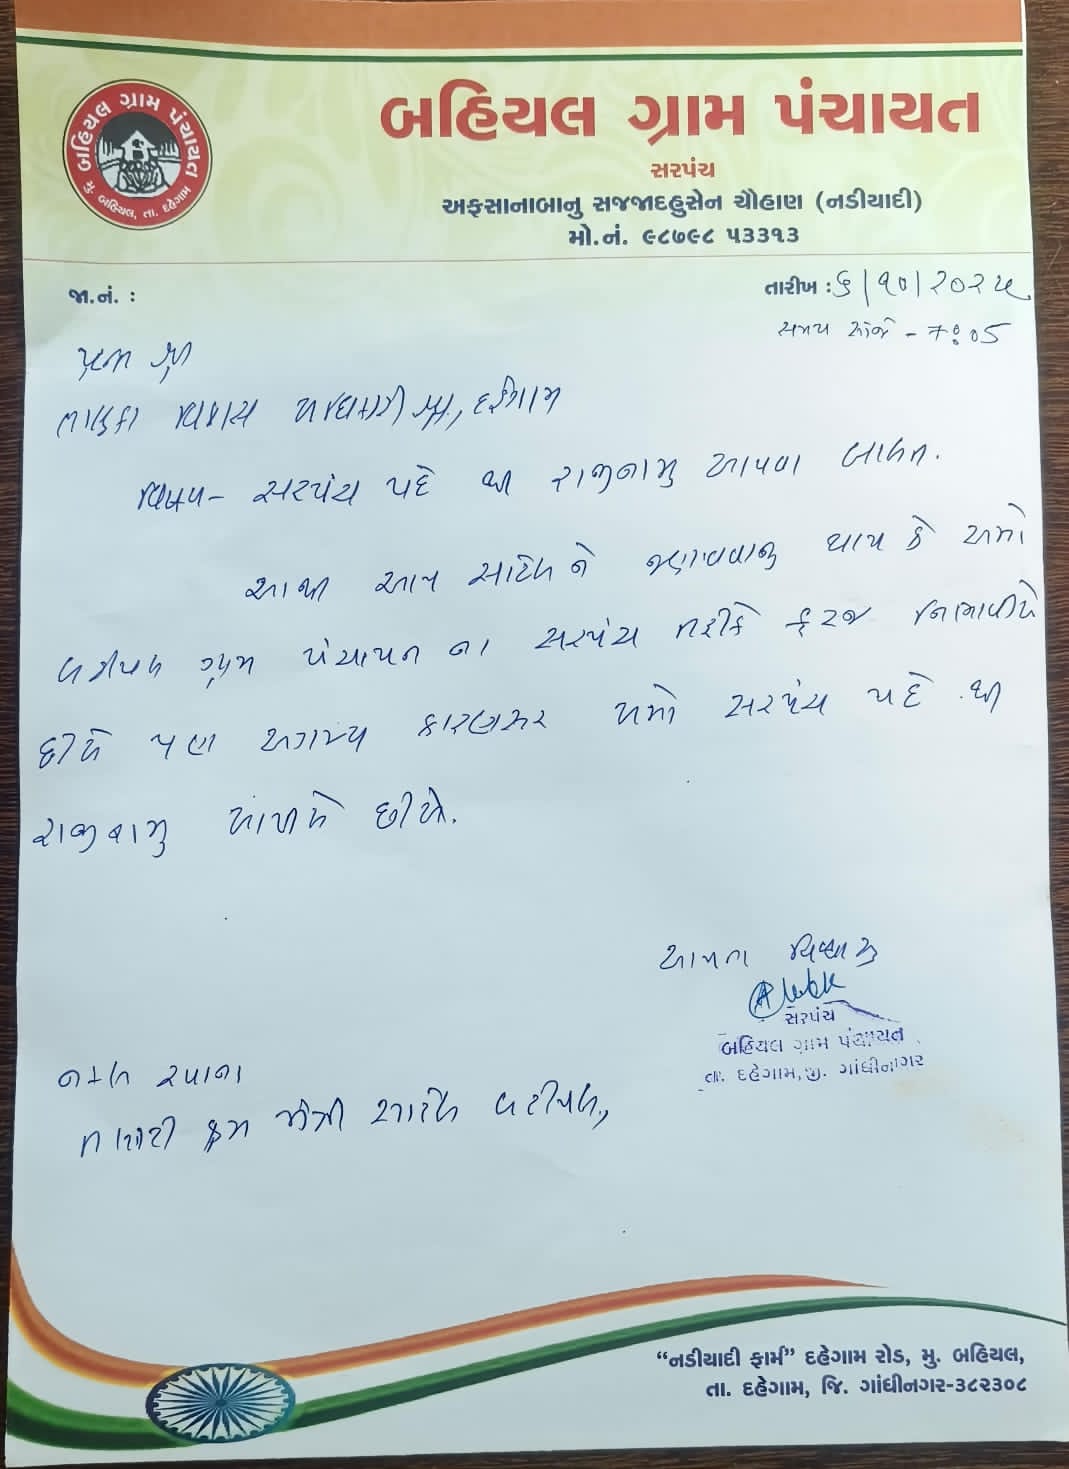 બહિયલ ગ્રામ પંચાયત
મુ. બહિયલ, તા. દહેગામ
બહિયલ ગ્રામ પંચાયત
સરપંચ
અફસાનાબાનુ સજજાદહુસેન ચૌહાણ (નડીયાદી)
મો.નં. ૯૮૭૯૮ ૫૩૩૧૩
જા.નં. :
તારીખ : ૬/૧૦/૨૦૨૫
સમય સાંજે - 7:05
તાલુકા વિકાસ અધિકારી શ્રી, દહેગામ
વિષય - સરપંચ પદે થી રાજીનામુ આપવા બાબત.
આથી આપ સાહેબ ને જણાવવાનુ થાય કે અમો
બહીયલ ગ્રામ પંચાયત ના સરપંચ તરીકે ફરજ નિભાવીયે
છીયે પણ અગમ્ય કારણસર અમો સરપંચ પદે થી
રાજીનામુ આપીયે છીયે.
આપના વિશ્વાસુ
સરપંચ
બહિયલ ગ્રામ પંચાયત
તા. દહેગામ, જી. ગાંધીનગર
નકલ રવાના
તલાટી કમ મંત્રી સાહેબ બહીયલ,
“નડીયાદી ફાર્મ” દહેગામ રોડ, મુ. બહિયલ,
તા. દહેગામ, જિ. ગાંધીનગર-૩૮૨૩૦૮